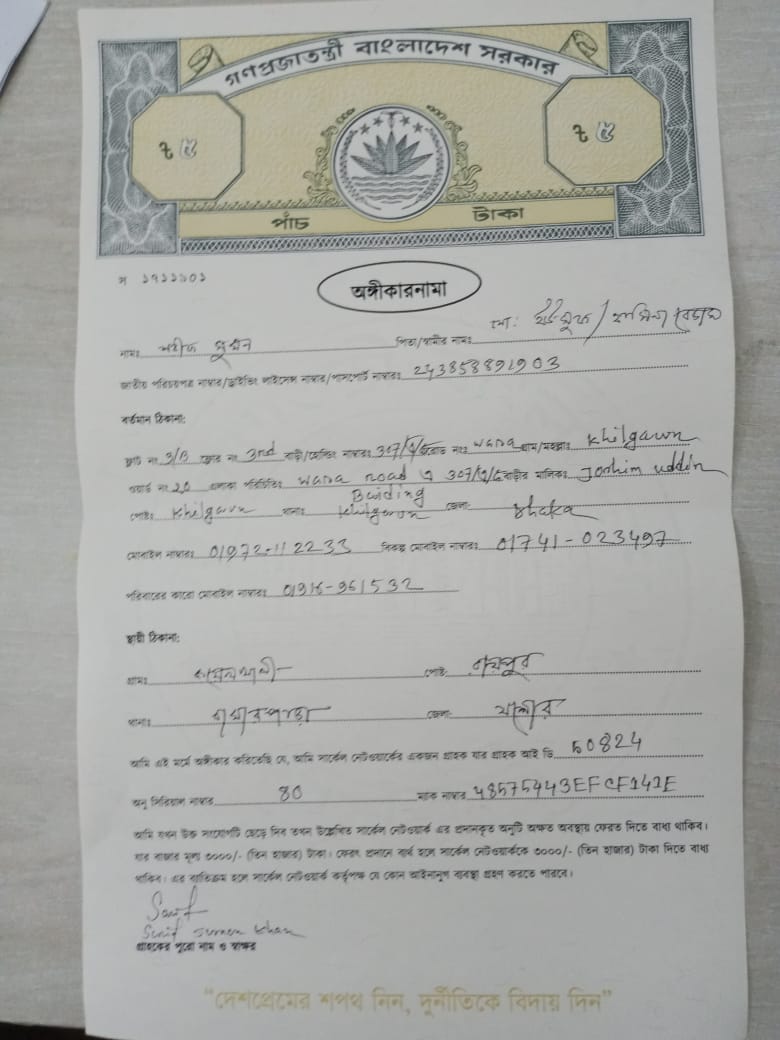 গণপ্রজাতন্ত্রী বাংলাদেশ সরকার
৳ ৫ ৳ ৫
পাঁচ টাকা
অঙ্গীকারনামা
নামঃ পিতা/স্বামীর নামঃ মোঃ
জাতীয় পরিচয়পত্র নাম্বার/ড্রাইভিং লাইসেন্স নাম্বার/পাসপোর্ট নাম্বারঃ
বর্তমান ঠিকানা:
ফ্লাট নং 3/B ফ্লোর নং 3rd বাড়ী/হোল্ডিং নাম্বারঃ রোড নংঃ wasa গ্রাম/মহল্লাঃ Khilgawn
ওয়ার্ড নং 20 এলাকা পরিচিতিঃ wasa road বাড়ীর মালিকঃ Joshim uddin
পোষ্টঃ Khilgawn থানাঃ Khilgawn জেলা: Dhaka
মোবাইল নাম্বারঃ 01972-112233 বিকল্প মোবাইল নাম্বারঃ 01741-023497
পরিবারের কারো মোবাইল নাম্বারঃ 01916-961532
স্থায়ী ঠিকানা:
গ্রামঃ পোষ্ট: রায়পুর
থানাঃ বাঘারপাড়া জেলা: যশোর
আমি এই মর্মে অঙ্গীকার করিতেছি যে, আমি সার্কেল নেটওয়ার্কের একজন গ্রাহক যার গ্রাহক আই ডি 50824
অনু সিরিয়াল নাম্বার 80 ম্যাক নাম্বার 48575443EFCF141E
আমি যখন উক্ত সংযোগটি ছেড়ে দিব তখন উল্লেখিত সার্কেল নেটওয়ার্ক এর প্রদানকৃত অনুটি অক্ষত অবস্থায় ফেরত দিতে বাধ্য থাকিব।
যার বাজার মূল্য ৩০০০/- (তিন হাজার) টাকা। ফেরৎ প্রদানে ব্যর্থ হলে সার্কেল নেটওয়ার্ককে ৩০০০/- (তিন হাজার) টাকা দিতে বাধ্য
থাকিব। এর ব্যতিক্রম হলে সার্কেল নেটওয়ার্ক কর্তৃপক্ষ যে কোন আইনানুগ ব্যবস্থা গ্রহণ করতে পারবে।
গ্রাহকের পুরো নাম ও স্বাক্ষর
"দেশপ্রেমের শপথ নিন, দুর্নীতিকে বিদায় দিন"